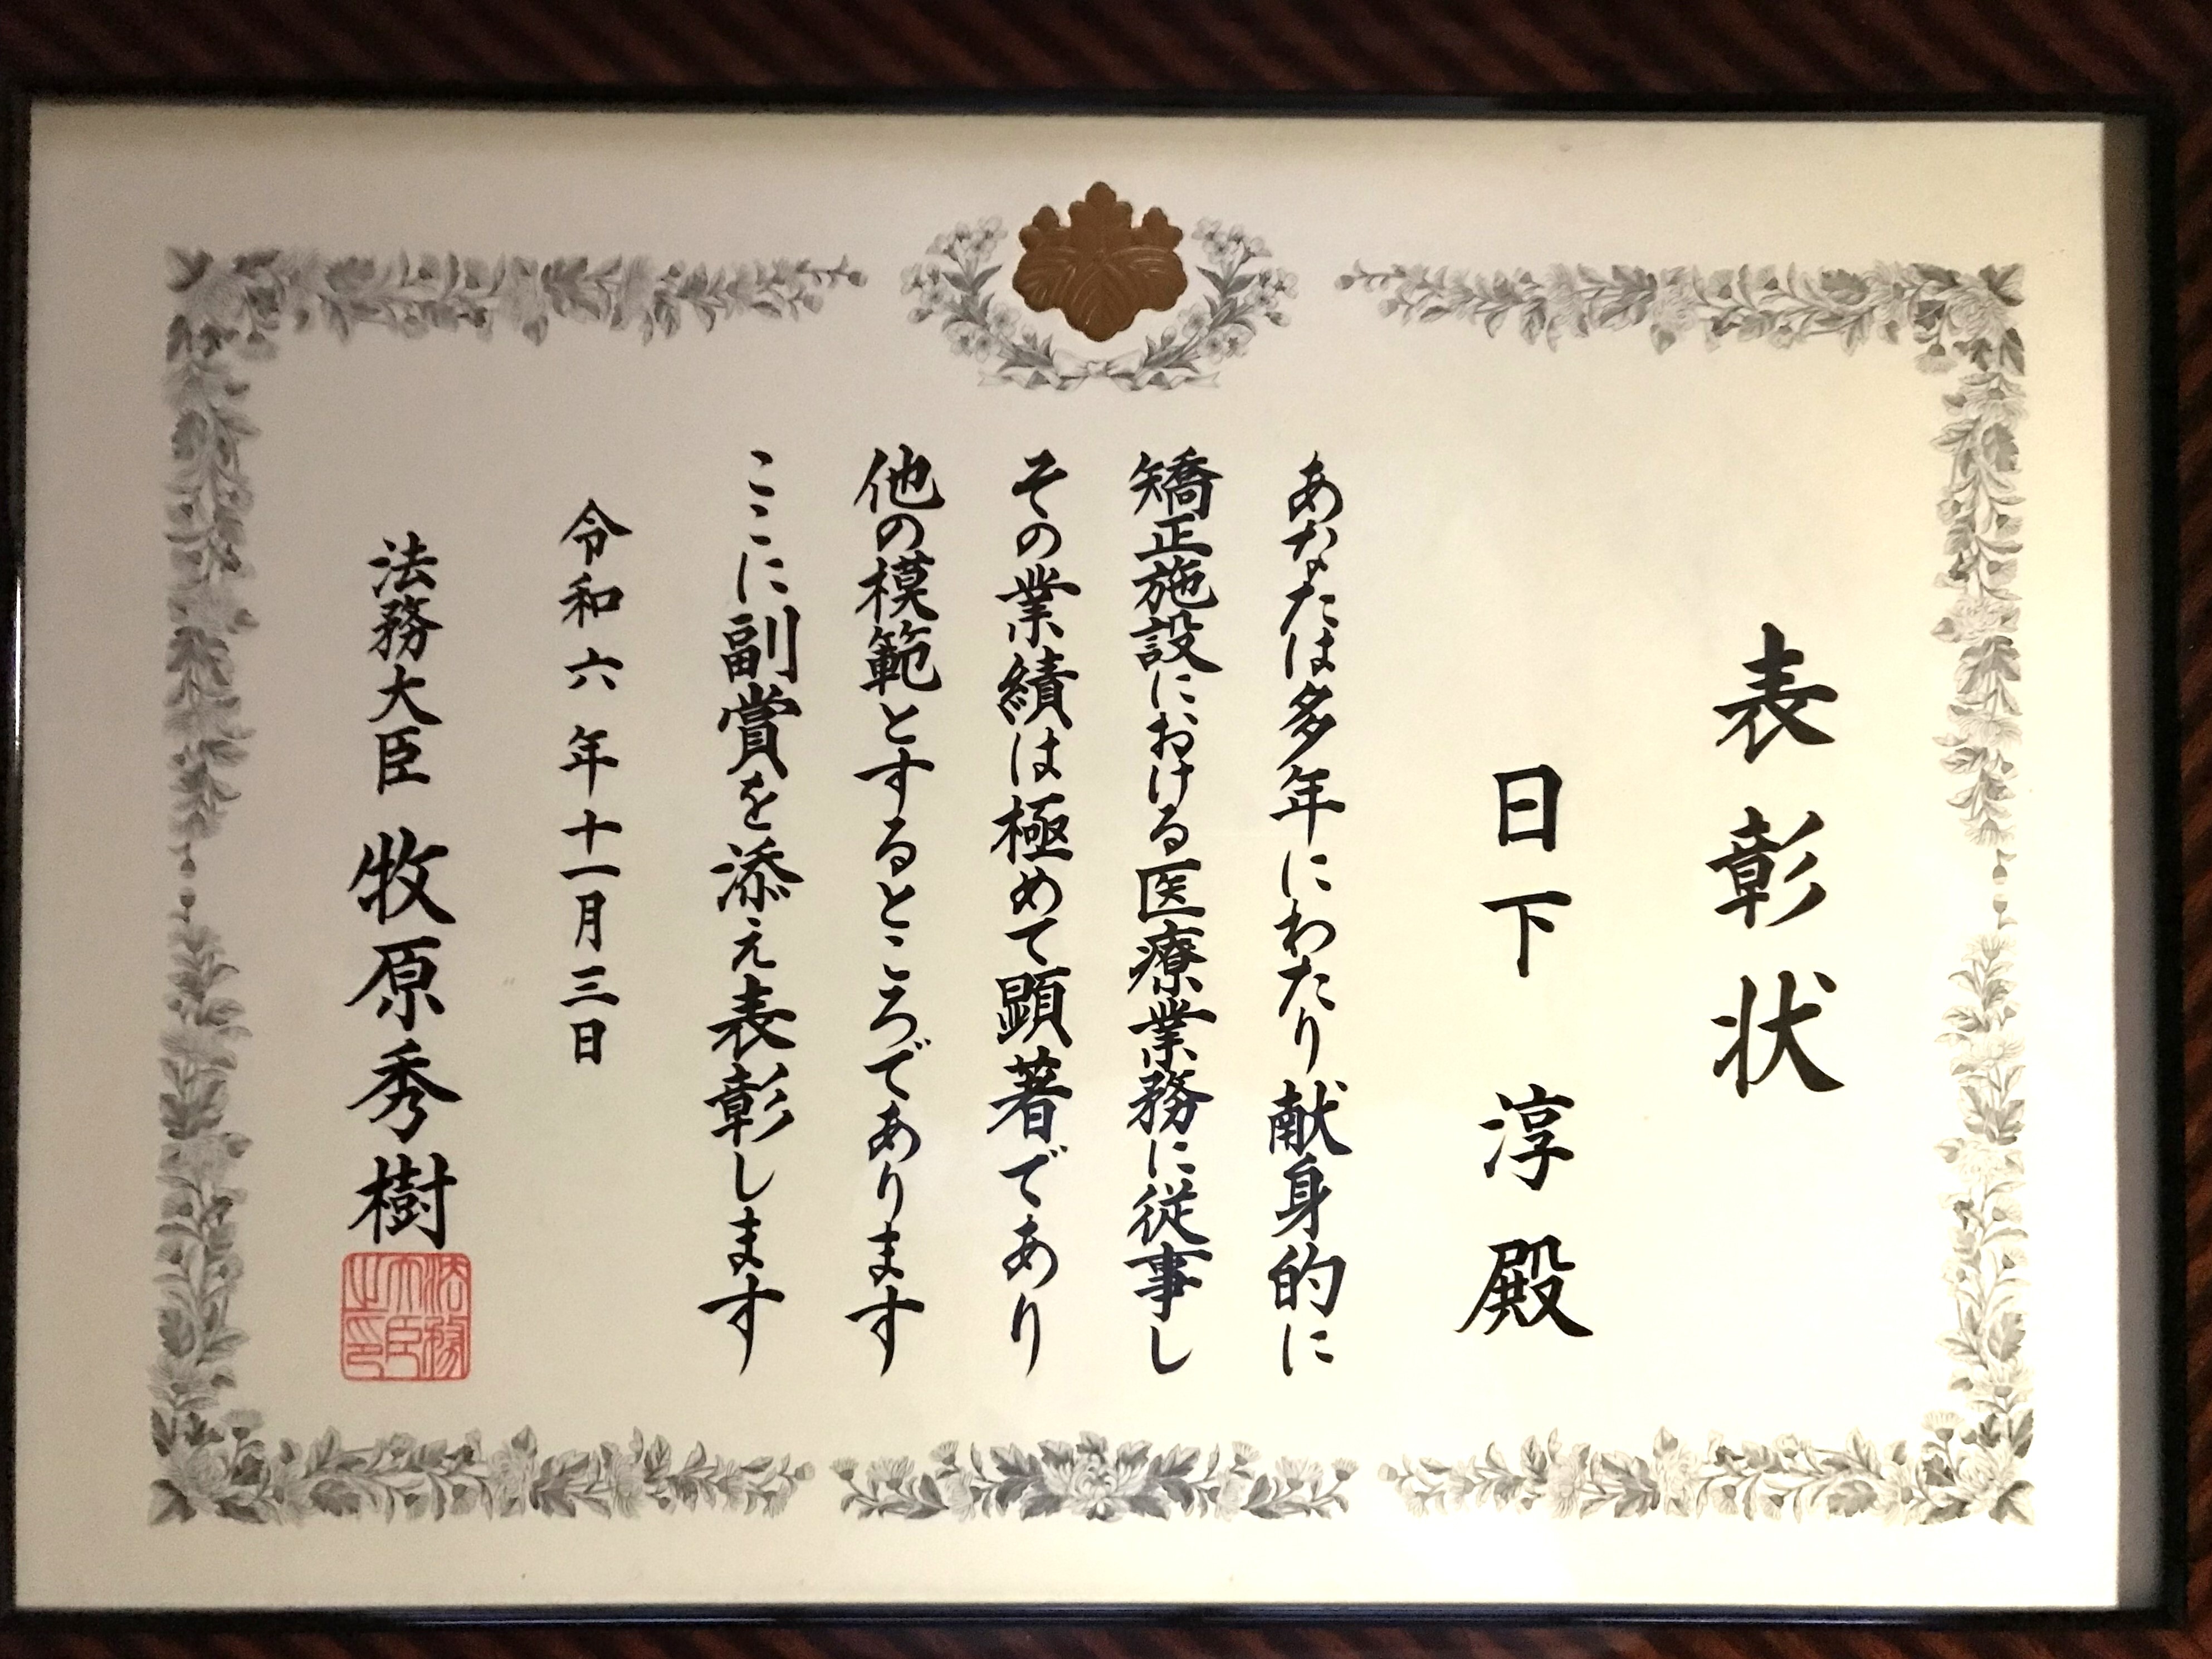 表彰状
日下 淳 殿
あなたは多年にわたり献身的に
矯正施設における医療業務に従事し
その業績は極めて顕著であり
他の模範とするところであります
ここに副賞を添え表彰します
令和六年十一月三日
法務大臣 牧原秀樹
法務
大臣
之印